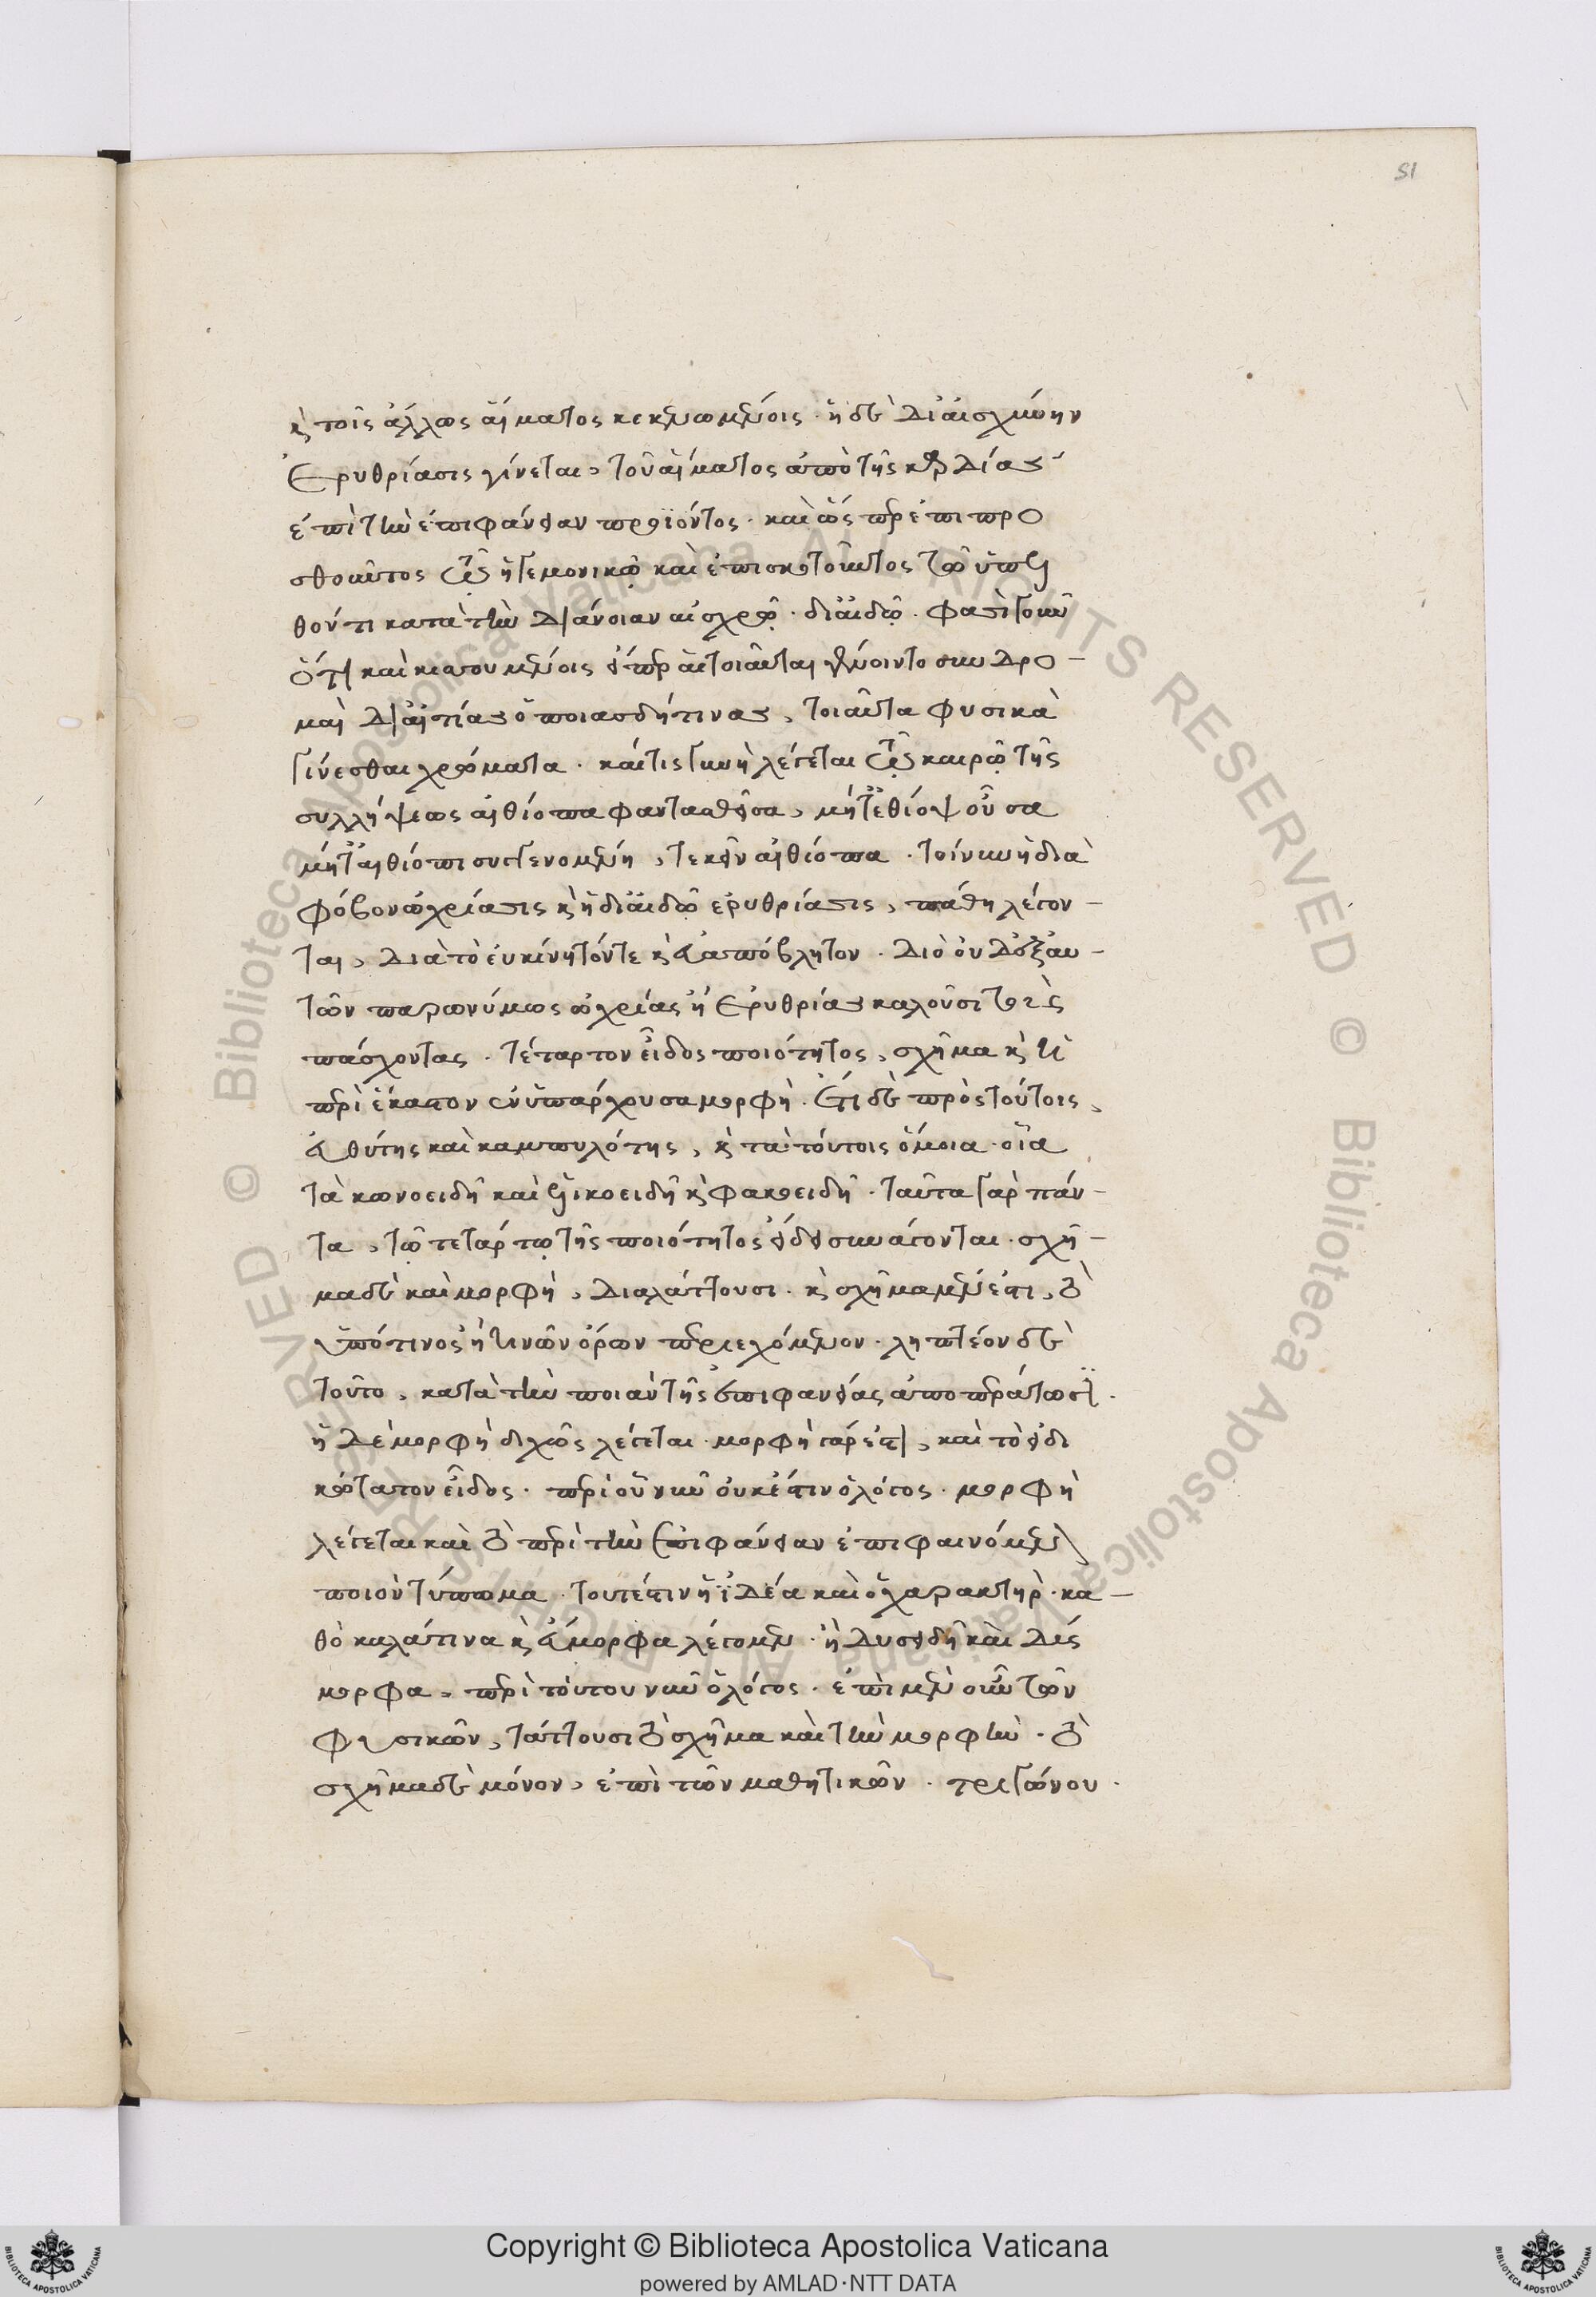 51
κ τοῖς ἄλλως αἵματος κεκενωμένοις · ἡ δὲ δι' αἰσχύνην
ἐρυθρίασις γίνεται, τοῦ αἵματος ἀπὸ τῆς καρδίας
ἐπὶ τὴν ἐπιφάνειαν προϊόντος · καὶ ὥσπερ ἐπιπρο
σθοῦντος τοῦ ἡγεμονικοῦ καὶ ἐπισκοτοῦντος τῶ ὑπελ
θόντι κατὰ τὴν διάνοιαν αἰσχρῶ · δι' αἰδῶ · φασὶ γοῦν
ὅτι καὶ κυουμένοις εἴπερ αἱ τοιαῦται γένοιντο συνδρο –
μαὶ δι' αἰτίας ὁποιασδήτινας, τοιαῦτα φυσικὰ
γίνεσθαι χρώματα · καί τις γυνὴ λέγεται τοῦ καιρῶ τῆς
συλλήψεως αἰθίοπα φαντασθεῖσα, μήτ' αἰθίοψ οὖσα
μήτ' αἰθίοπι συγγενομένη, τεκεῖν αἰθίοπα · τοίνυν ἡ διὰ
φόβον ὠχρίασις κ ἡ δι' αἰδῶ ἐρυθρίασις, πάθη λέγον –
ται, διὰ τὸ εὐκίνητόν τε κ εὐαπόβλητον · διὸ οὐδ' ἐξ αυ –
τῶν παρωνύμως ὠχρίας ἢ ἐρυθρίας καλοῦσι τοὺς
πάσχοντας · τέταρτον εἶδος ποιότητος, σχῆμα κ ἡ
περὶ ἕκαστον ἐνυπάρχουσα μορφὴ · ἔτι δὲ πρὸς τούτοις,
εὐθύτης καὶ καμπυλότης, κ τὰ τούτοις ὅμοια · οἷα
τὰ κωνοειδῆ καὶ ἑλικοειδῆ κ φακοειδῆ · ταῦτα γὰρ πάν –
τα, τῶ τετάρτω τῆς ποιότητος εἴδει συνάγονται · σχῆ –
μα δὲ καὶ μορφὴ, διαλάττουσι · κ σχῆμα μέν ἐστι, τὸ
ὑπό τινος ἢ τινῶν ὅρων περιεχόμενον · ληπτέον δὲ
τοῦτο, κατὰ τὴν ποιὰν τῆς ἐπιφανείας ἀποπεράτωσιν ·
ἡ δὲ μορφὴ διχῶς λέγεται · μορφὴ γάρ ἐστι, καὶ τὸ εἰδι
κώτατον εἶδος · περὶ οὗ νῦν οὐκ ἔστιν ὁ λόγος · μορφὴ
λέγεται καὶ τὸ περὶ τὴν ἐπιφάνειαν ἐπιφαινόμενον
ποιὸν τύπωμα · τουτέστιν ἡ ἰδέα καὶ ὁ χαρακτὴρ · κα –
θὸ καλά τινα κ εὔμορφα λέγομεν · ἢ δυσειδῆ καὶ δύς
μορφα, περὶ τούτου νῦν ὁ λόγος · ἐπὶ μὲν οὖν τῶν
φυσικῶν, τάττουσι τὸ σχῆμα καὶ τὴν μορφὴν · τὸ
σχῆμα δὲ μόνον, ἐπὶ τῶν μαθητικῶν · τριγώνου ·
Copyright © Biblioteca Apostolica Vaticana
powered by AMLAD·NTT DATA